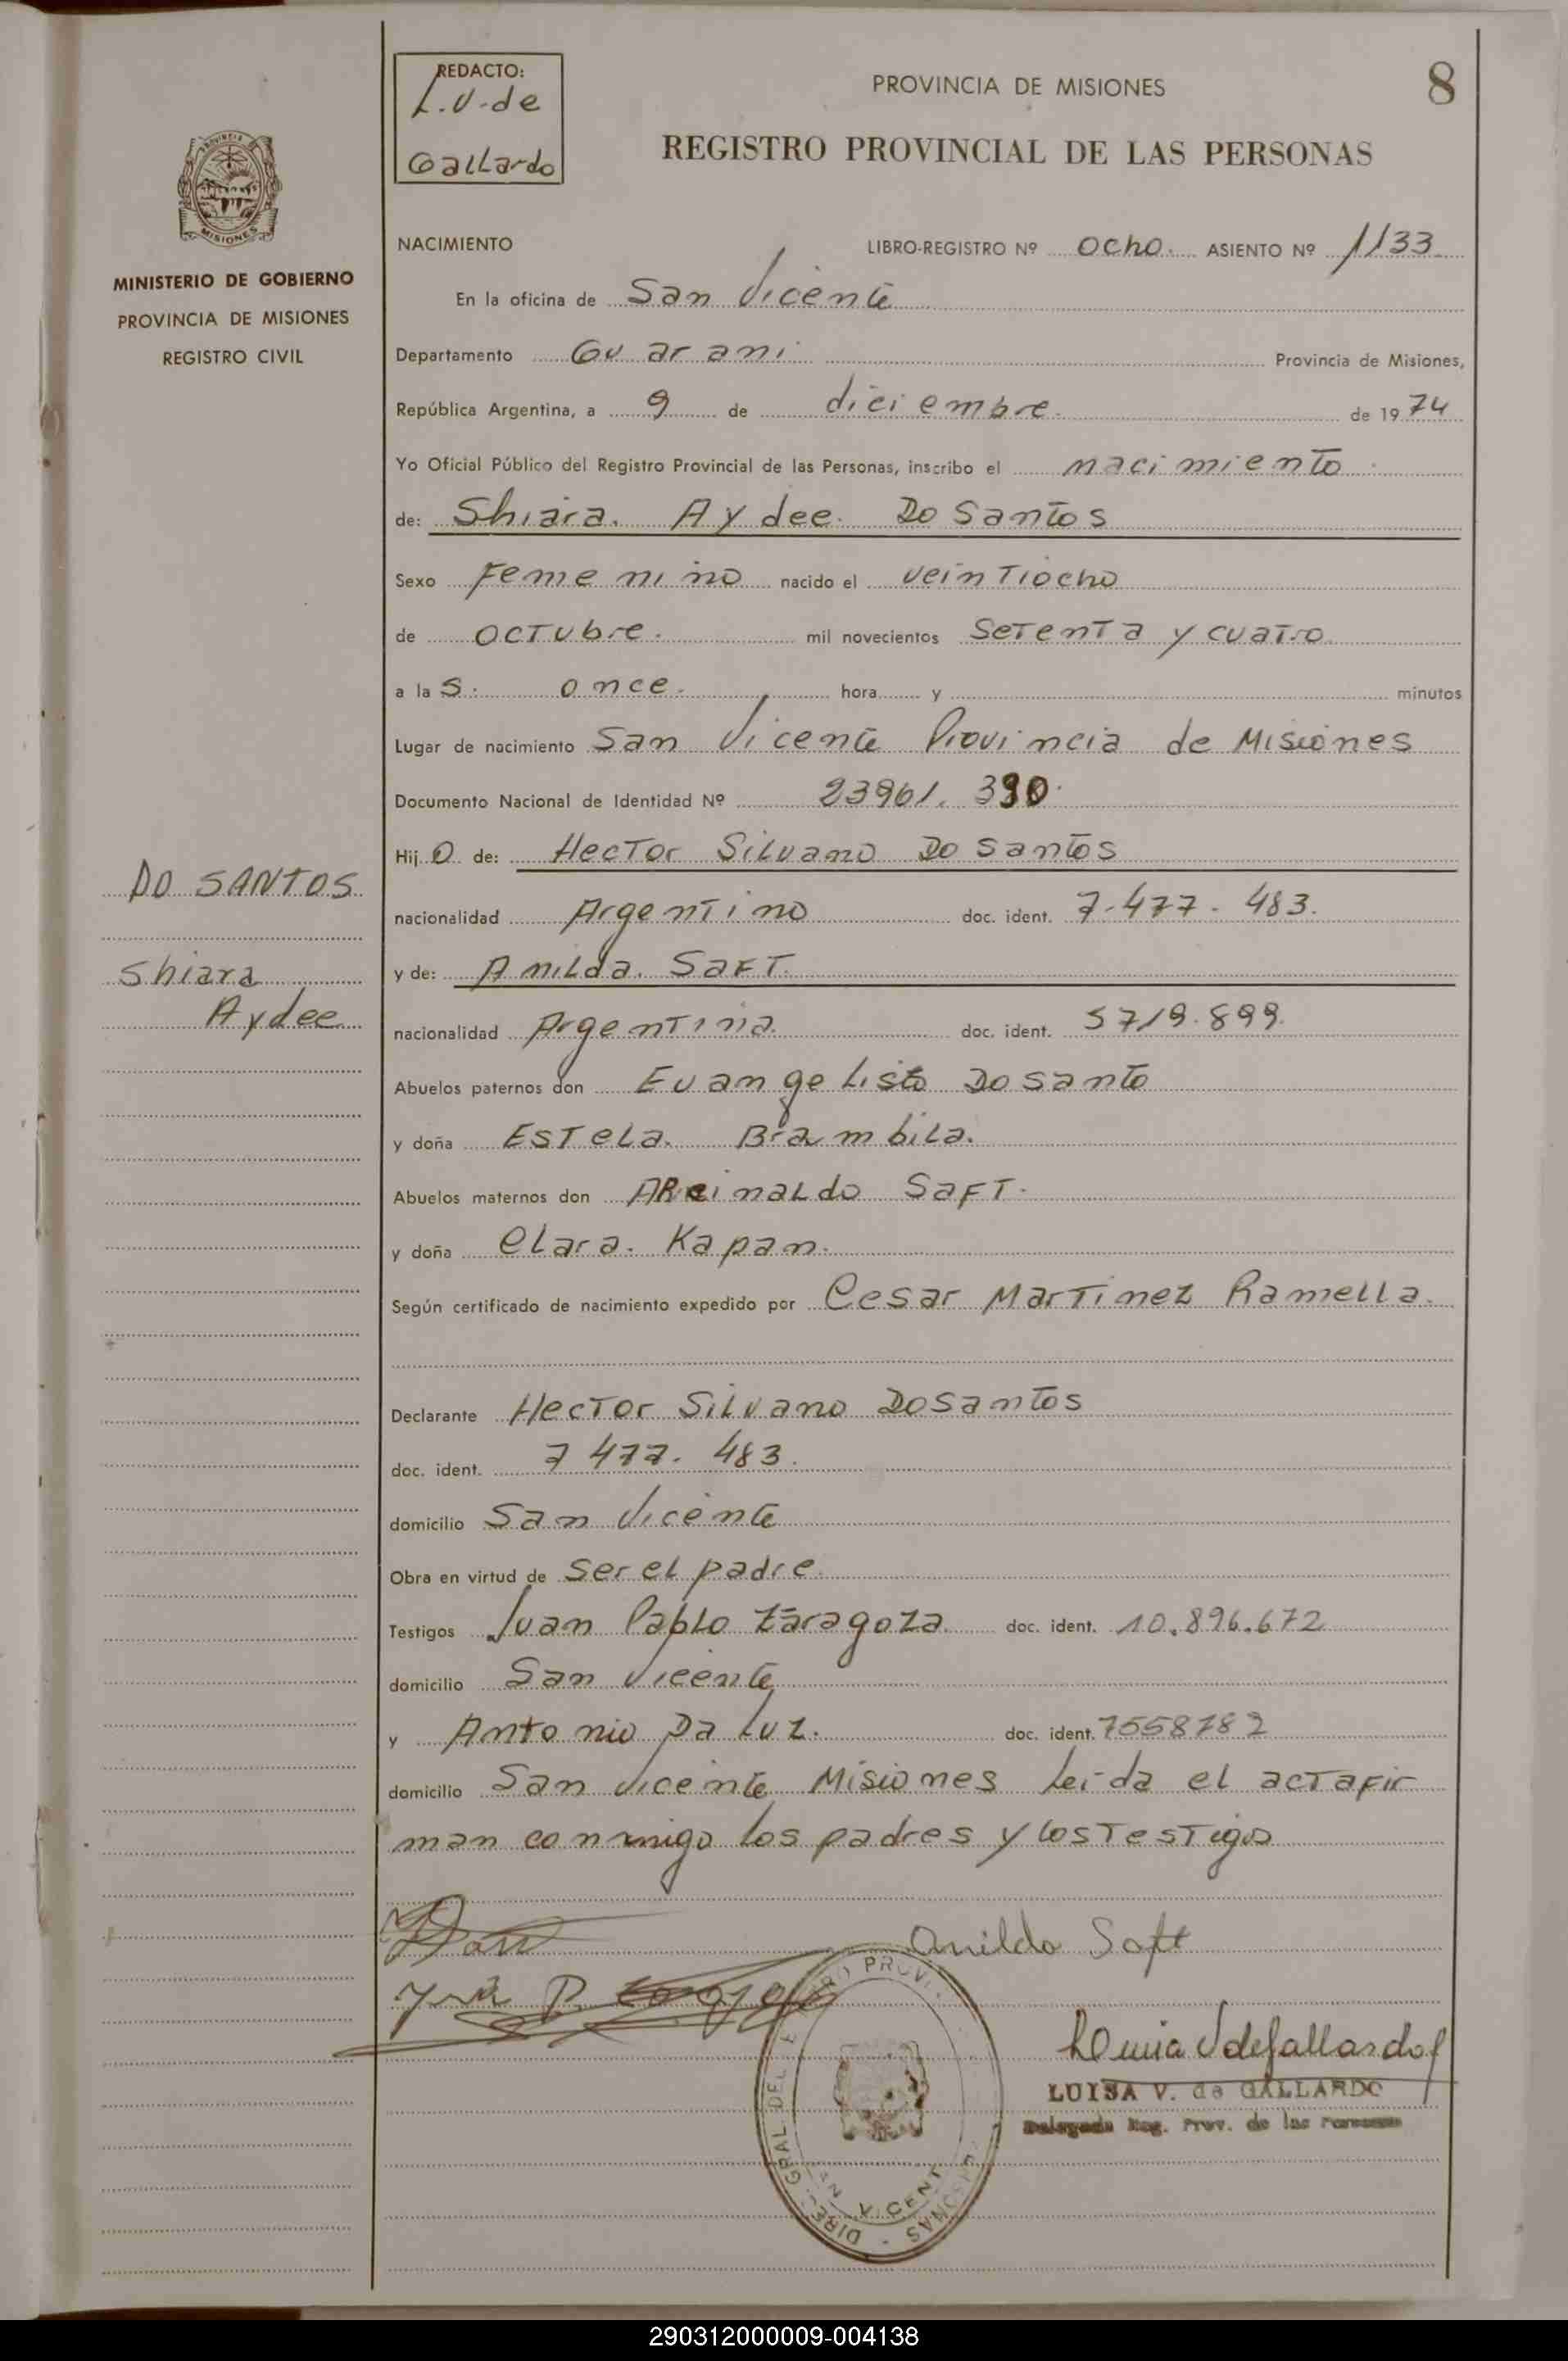 REDACTO:
L.V. de
Gallardo
PROVINCIA DE MISIONES
8
REGISTRO PROVINCIAL DE LAS PERSONAS
MISIONES
MINISTERIO DE GOBIERNO
PROVINCIA DE MISIONES
REGISTRO CIVIL
NACIMIENTO LIBRO-REGISTRO Nº ocho. ASIENTO Nº 1133
En la oficina de San Vicente
Departamento Guarani Provincia de Misiones,
República Argentina, a 9 de diciembre de 1974
Yo Oficial Público del Registro Provincial de las Personas, inscribo el nacimiento
de: Shiara. Aydee. Do Santos
Sexo Femenino nacido el veintiocho
de octubre. mil novecientos setenta y cuatro
a las. once. hora y minutos
Lugar de nacimiento San Vicente Provincia de Misiones
Documento Nacional de Identidad Nº 23961.390.
Hijo de: Hector Silvano Do Santos
DO SANTOS
nacionalidad Argentino doc. ident. 7.477.483.
Shiara
y de: Anilda. Saft.
Aydee
nacionalidad Argentina doc. ident. 5719.899.
Abuelos paternos don Evangelisto Do Santo
y doña Estela. Brambila.
Abuelos maternos don Saft.
y doña Clara. Kapan.
Según certificado de nacimiento expedido por Cesar Martinez Ramella.
Declarante Hector Silvano Do Santos
doc. ident. 7 477. 483.
domicilio San Vicente
Obra en virtud de ser el padre
Testigos Juan Pablo Zaragoza doc. ident. 10.896.672
domicilio San Vicente
y Antonio Da Luz. doc. ident. 7558782
domicilio San Vicente Misiones leida el acta fir
man conmigo los padres y los testigos
Anilda Saft
LUISA V. de GALLARDO
Delegada Reg. Prov. de las Personas
290312000009-004138